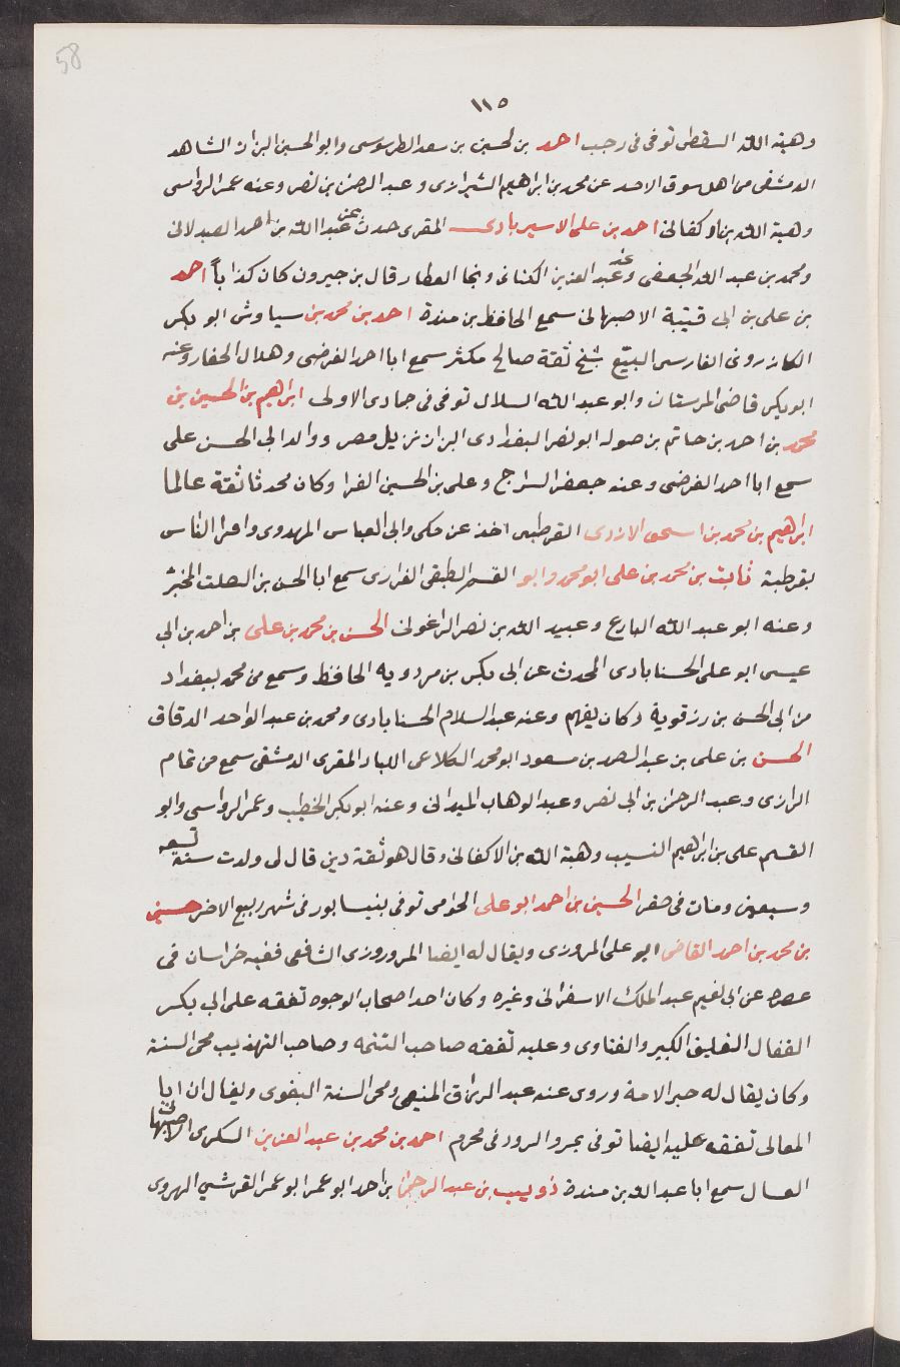 58
١١٥
وهبة الله السقطى توفى فى رجب احمد بن لحسين بن سعد الطرسوسى وابو الحسين البزاز الشاهد
الدمشقى من اهل سوق الاحد عن محمد بن ابراهيم الشيرازى وعبد الرحمن بن نصر وعنه عمر الرواسى
وهبة الله بن اوكفانى احمد بن على الاسيربادى المقرى حدث عن عبد الله بن احمد الصيدلانى
ومحمد بن عبد الله الجعفى وعنه عبد العزيز الكتانى ونجا العطار قال بن جيرون كان كذابا احمد
بن على بن ابى قتيبة الاصبهانى سمع الحافظ بن مندة احمد بن محمد بن سياوش ابو بكر
الكازرونى الفارسى البيّع شيخ ثقة صالح مكثر سمع ابا احمد الفرضى وهلال الحفار وعنه
ابو بكر قاضى المرستان وابو عبد الله السلال توفى فى جمادى الاولى ابراهيم بن الحسين بن
محمد بن احمد بن حاتم بن صوله ابو نصر البغدادى البزاز نزيل مصر ووالد ابى الحسن على
سمع ابا احمد الفرضى وعنه جعفر السراج وعلى بن الحسين الفرا وكان محدثا ثقة عالما
ابراهيم بن محمد بن اسحق الازدى القرطبى اخذ عن مكى وابى العباس المهدوى واقرا الناس
بقرطبة ثابت بن محمد بن على ابو محمد وابو القسم الطبقى الفزارى سمع ابا الحسن بن الصلت المخبر
وعنه ابو عبد الله البارع وعبيد الله بن نصر الزاغونى الحسن بن محمد بن على بن احمد بن ابى
عيسى ابو على الحسنابادى المحدث عن ابى بكر بن مردويه الحافظ وسمع من محمد ببغداد
من ابى الحسن بن رزقوية وكان يفهم وعنه عبد السلام الحسنابادى ومحمد بن عبد الواحد الدقاق
الحسن بن على بن عبد الصمد بن مسعود ابو محمد الكلاعى اللباد المقرى الدمشقى سمع من تمام
الرازى وعبد الرحمن بن ابى نصر وعبد الوهاب الميدانى وعنه ابو بكر الخطيب وعمر الرواسى وابو
القسم على بن ابراهيم النسيب وهبة الله بن الاكفانى وقال هو ثقة دين قال لى ولدت سنة تسعه
وسبعين ومات فى صفر الحسين بن احمد ابو على الخوامى توفى بنيسابور فى شهر ربيع الاخر حسين
بن محمد بن احمد القاضى ابو على المروزى ويقال له ايضا المروروزى الشافعى فقيه خراسان فى
عصره عن ابى نعيم عبد الملك الاسفرانى وغيره وكان احد اصحاب الوجوه تفقه على ابى بكر
القفال التعليق الكبير والفتاوى وعليه تفقه صاحب التتمه وصاحب التهذيب محى السنة
وكان يقال له حبر الامة وروى عنه عبد الرزاق المنيعى ومحى السنة البغوى ويقال ان ابا
المعالى تفقه عليه ايضا توفى بمرو الرود فى محرم احمد بن محمد بن عبد العزيز السكرى الاصبهانى
العسال سمع ابا عبد الله بن مندة ذويب بن عبد الرحمن بن احمد ابو عمر ابو عمر القرشى الهروى